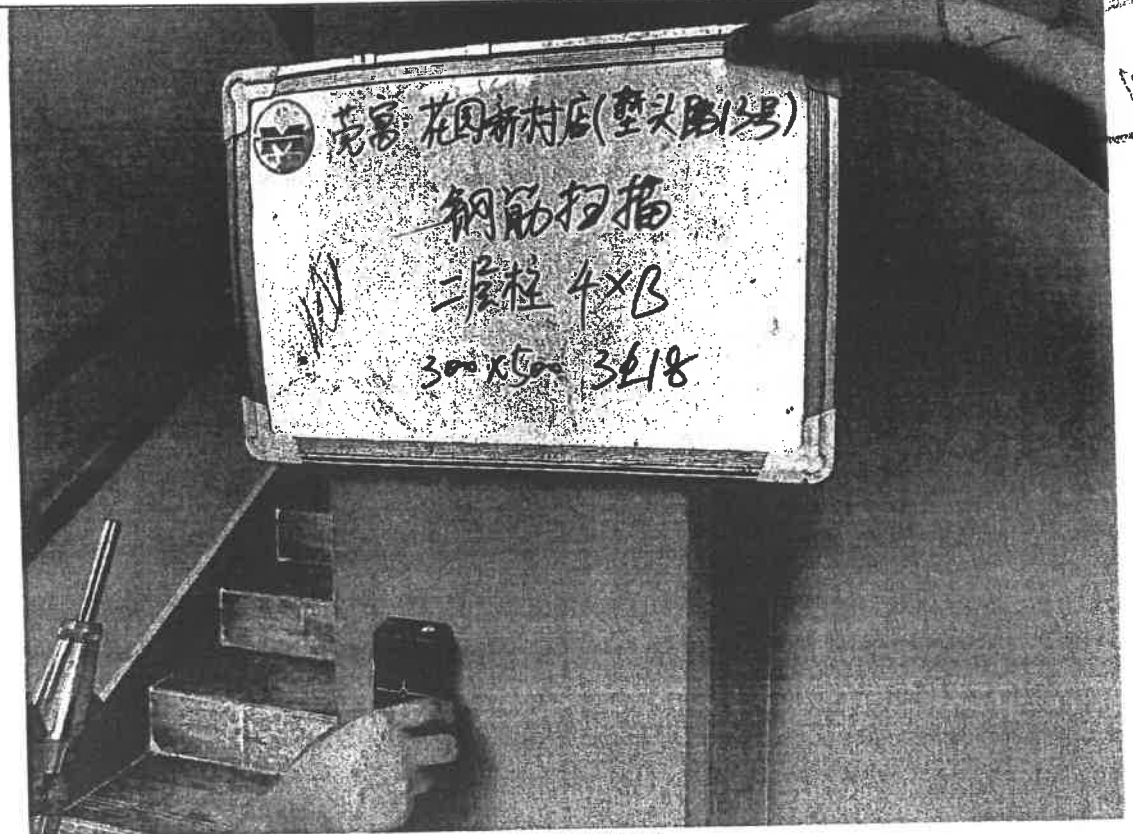 莞富 花园新村店(墊头路13号)
钢筋扫描
二层柱 4×B
300×500 3⌀18